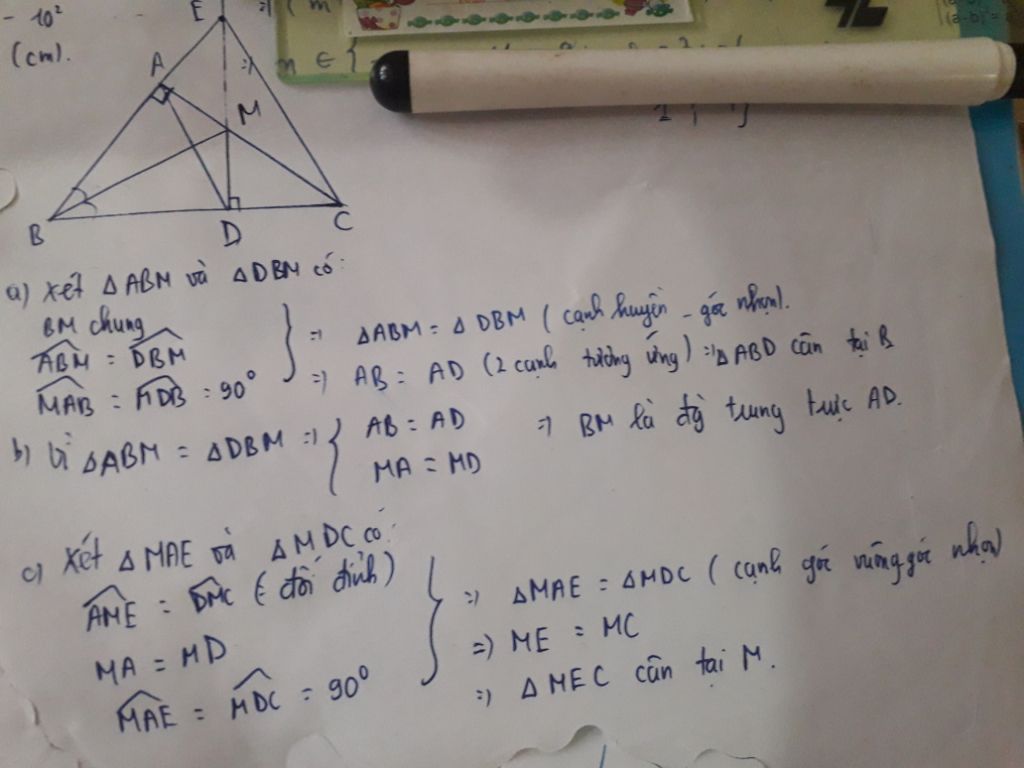 - 10²
(cm).
E
A
M
B
D
C
a) Xét △ABM và △DBM có:
BM chung
ABM = DBM
MAB = MDB = 90°
⇒ △ABM = △DBM (cạnh huyền - góc nhọn).
⇒ AB = AD (2 cạnh tương ứng) ⇒ △ABD cân tại B
b) Vì △ABM = △DBM ⇒ { AB = AD
MA = MD
⇒ BM là đg trung trực AD.
c) Xét △MAE và △MDC có:
AME = DMC (đối đỉnh)
MA = MD
MAE = MDC = 90°
⇒ △MAE = △MDC (cạnh góc vuông góc nhọn)
⇒ ME = MC
⇒ △MEC cân tại M.